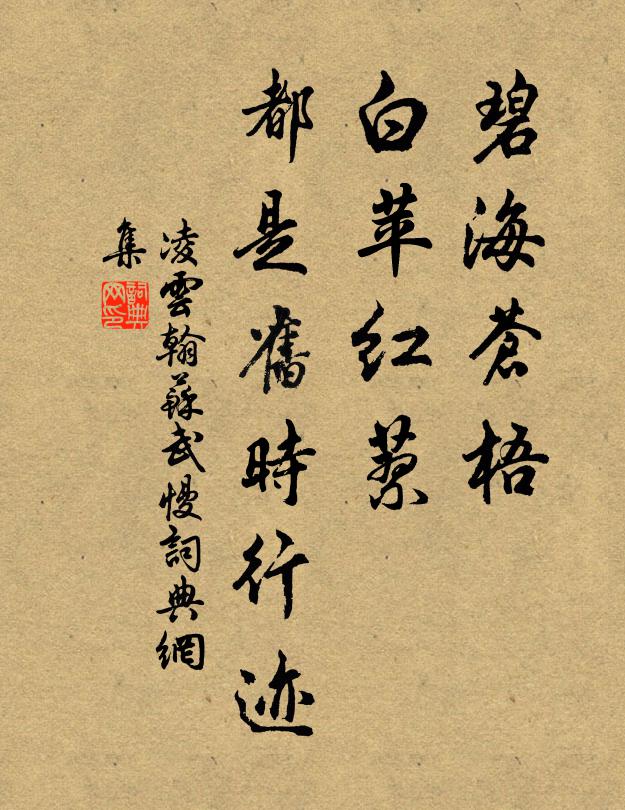 碧海蒼梧
白苹紅蓼
都是舊時行迹
凌雲翰蘇武慢詞典網
集
詞典
网印